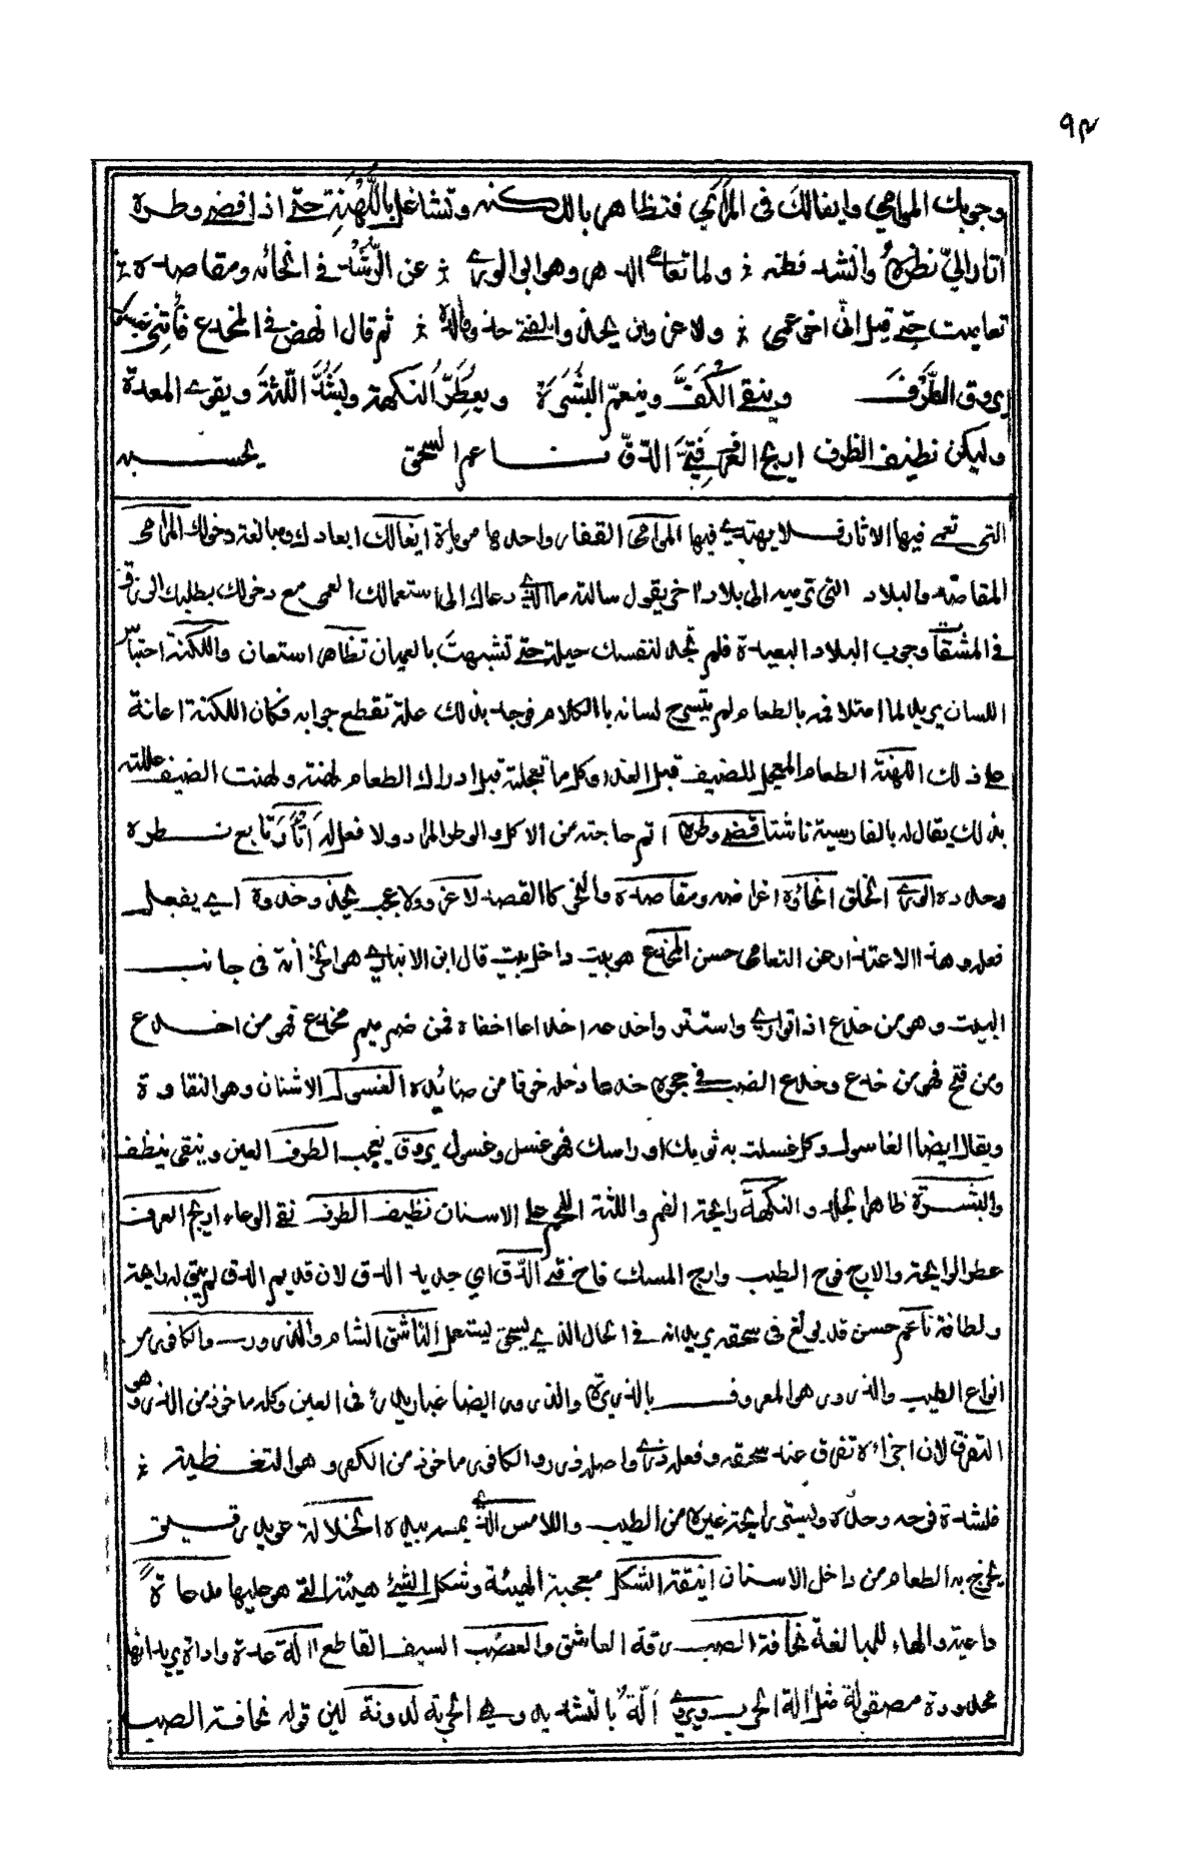 ٩٣
وجوبك الموامي وايغالك فى المرامي فتظاهر باللكنه وتشاغل باللهنة حتے اذا قضے وطره
اتار اليّ نظره وانشد فطنه ولما تعامى الدهر وهو ابو الورے عن الرّشد فے انحائه ومقاصده
تعاميت حتے قيل انّى اخو عمى ولا غرو ان يحذو الفتے حذو والده ثم قال انهض فے المخدع فأتنى بغسول
يروق الطّرف وينقے الكفّ وينعم البشَرة ويعطّر النكهة ويشدّ اللثة ويقوے المعدة
وليكن نظيف الظرف اريج العرف فتيَّ الدّقّ ناعم السحق يحسبه
التى تعمے فيها الاثار فلا يهتدے فيها المرامى القفار واحدها مرماة ايغالك ابعادك ومبالغة دخولك المرامى
المقاصد والبلاد التى ترميه الى بلاد اخر يقول سالته ما الذے دعاك الى استعمالك العمى مع دخولك بطلبك الرزق
فے المشقات وجوب البلاد البعيدة فلم تجد لنفسك حيلة حتے تشبهتَ بالعميان تظاهر استعان واللكنة احتباس
اللسان يريد لما امتلا فمه بالطعام لم يتسرح لسانه بالكلام فوجد بذلك علة تقطع جوابه فكان اللكنة اعانة
على ذلك اللهنة الطعام المعجل للضيف قبل الغداء وكل ما تعجلته قبل ادراك الطعام لهنة ولهنت الضيف عللته
بذلك يقال له بالفارسية ناشتا قضے وطره اتم حاجته من الاكل والوطر المراد ولا فعل له اَتْأَرَ تابع نظره
وحدده الورے الخلق انحائه اغراضه ومقاصده والنحو كالقصد لا غرو ولا عجب يحذو حذوه اے يفعل
فعله وهذا الاعتذار عن التعامى حسن المخدع هو بيت داخل بيت قال ابن الانبارے هو الخزانة فى جانب
البيت وهو من خدع اذا توارے واستتر واخدعه اخداعا اخفاه فمن ضم ميم مخدع فهو من اخدع
ومن فتح فهو من خدع وخدع الضب فے جحره خدعا دخله خوفا من صائده الغسول الاشنان وهو النقاوة
ويقال ايضا الغاسول وكل غسلت به ثوبك او راسك فهو غسل وغسول يروق يعجب الطرف العين وينقى ينظف
والبشرة ظاهر الجلد والنكهة رايحة الفم واللثة اللحم على الاسنان نظيف الظرف نقے الوعاء اريج العرف
عطر الرايحة والارج فوح الطيب وارج المسك فاح فتے الدّق اي جديد الدق لان قديم الدق لم يبق له رايحة
ولطافة ناعم حسن قد بولغ فى سحقه يريد انه فے الحال الذے يسحق ليستعمل الناشق الشام والذرور والكافور من
انواع الطيب والذرور هو المعروف بالذريرة والذرور ايضا غبار يذر فى العين وكله ماخوذ من الذر وهو
التفرق لان اجزائه تفرق عند سحقه وفعله ذرّے واصله ذرر والكافور ماخوذ من الكفر وهو التغطية
فلشدة فوحه وحدّه وليستر رايحة غيره من الطيب واللامس الذے يمسه بيده الخلالة عويد رقيق
يخرج به الطعام من داخل الاسنان انيقة الشكل معجبة الهيئة وشكل الشئ هيئته التے هو عليها مدعاة
داعية والهاء للمبالغة نحافة الصب رقة العاشق والعضب السيف القاطع الة عدة واداة يريد انها
محدودة مصقولة مثل الة الحرب ويروے اَلّة بالتشديد وهے الحربة لدونة لين قوله نحافة الصب